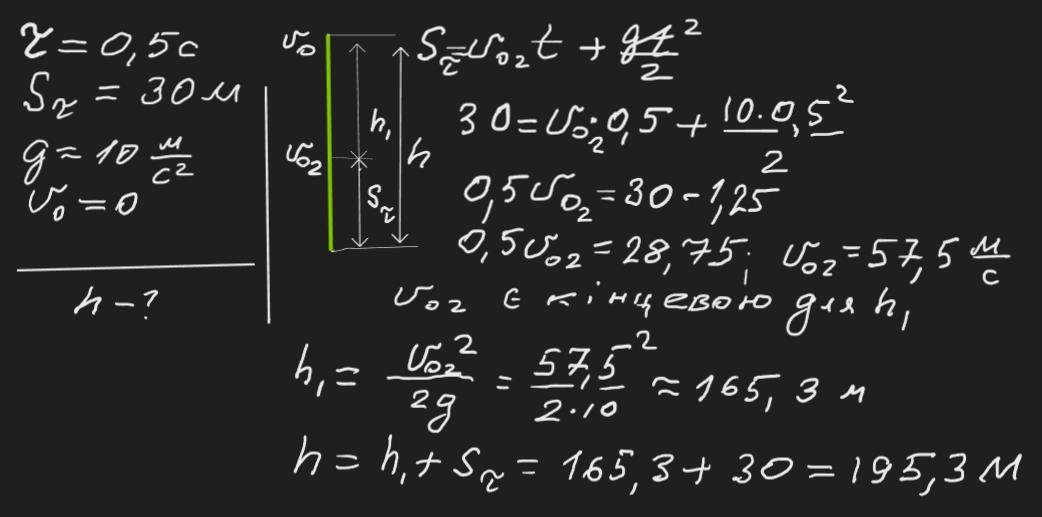 τ = 0,5 с
Sτ = 30 м
g = 10 м/с²
v₀ = 0
h – ?
v₀
v₀₂
h₁
h
Sτ
Sτ = v₀₂t + gt²/2
30 = v₀₂·0,5 + 10·0,5²/2
0,5v₀₂ = 30 - 1,25
0,5v₀₂ = 28,75; v₀₂ = 57,5 м/с
v₀₂ є кінцевою для h₁
h₁ = v₀₂²/2g = 57,5²/2·10 ≈ 165,3 м
h = h₁ + Sτ = 165,3 + 30 = 195,3 м